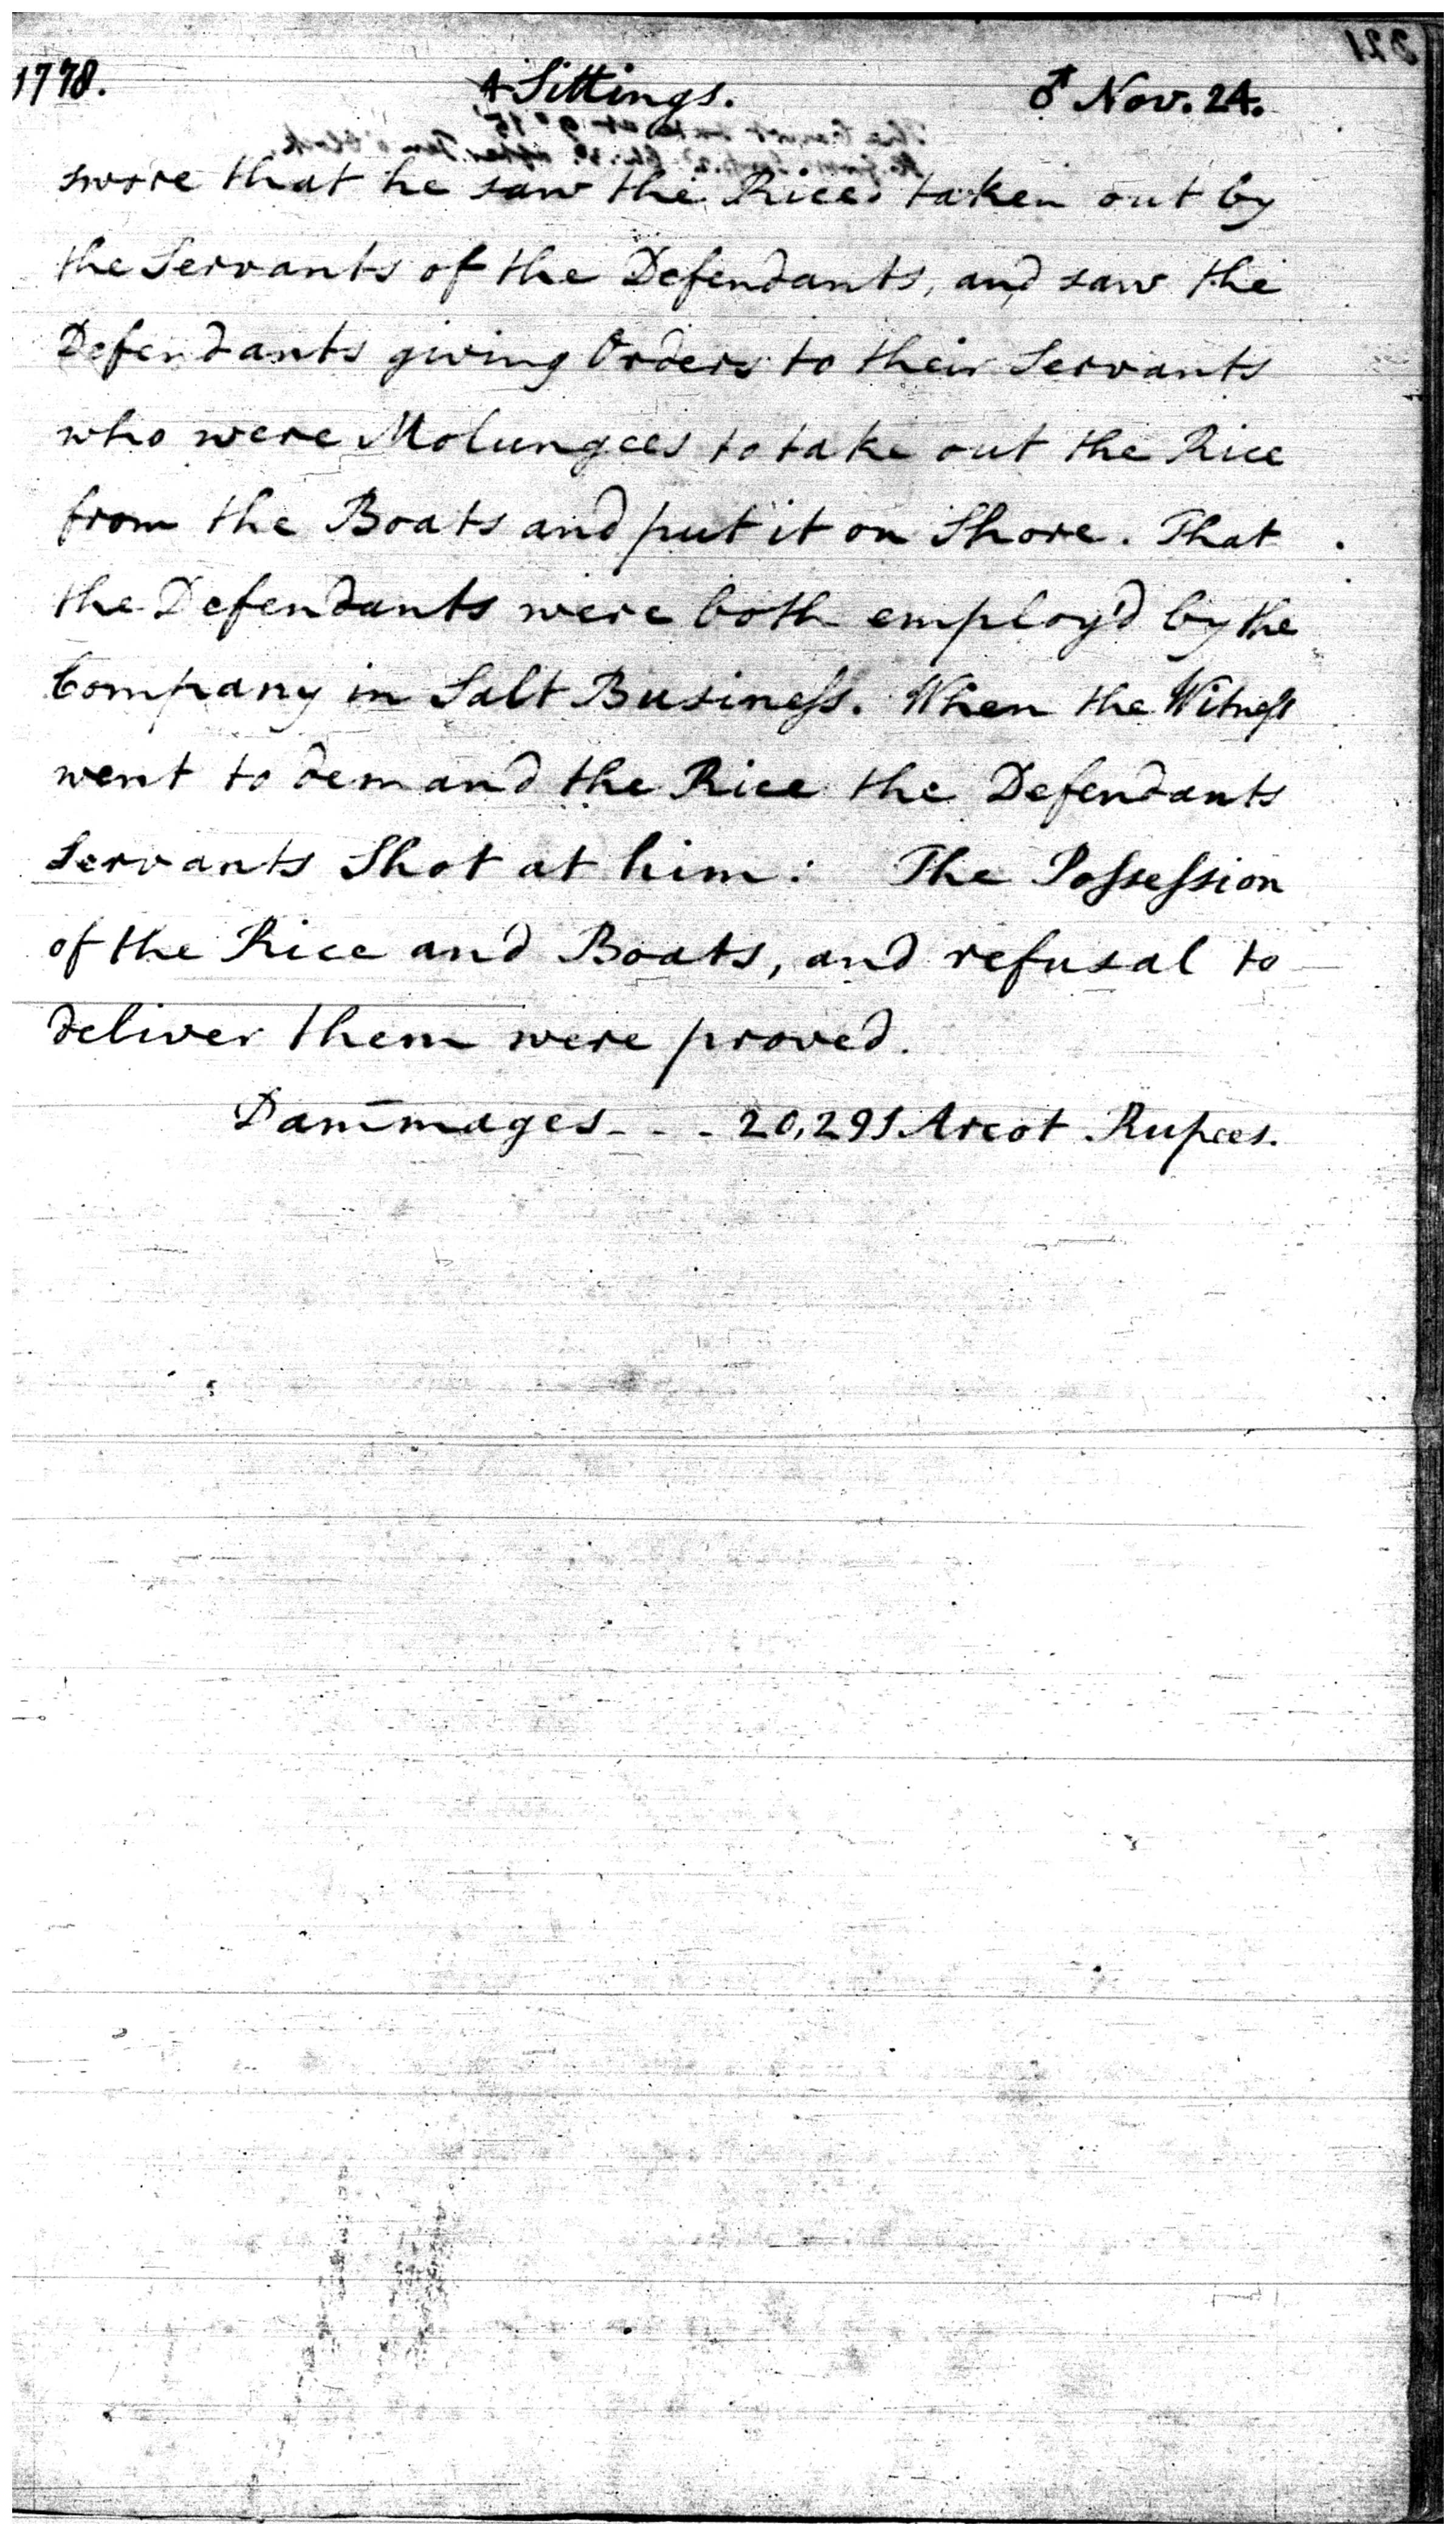 1778. 4 Sittings. ♂ Nov. 24.
swore that he saw the Rice taken out by
the Servants of the Defendants, and saw the
Defendants giving Orders to their Servants
who were Molungees to take out the Rice
from the Boats and put it on Shore. That
the Defendants were both employ'd by the
Company in Salt Busineſs. When the Witneſs
went to demand the Rice the Defendants
Servants Shot at him: The Poſseſsion
of the Rice and Boats, and refusal to
deliver them were proved.
Dam̄mages - - - 20,291 Arcot Rupees.